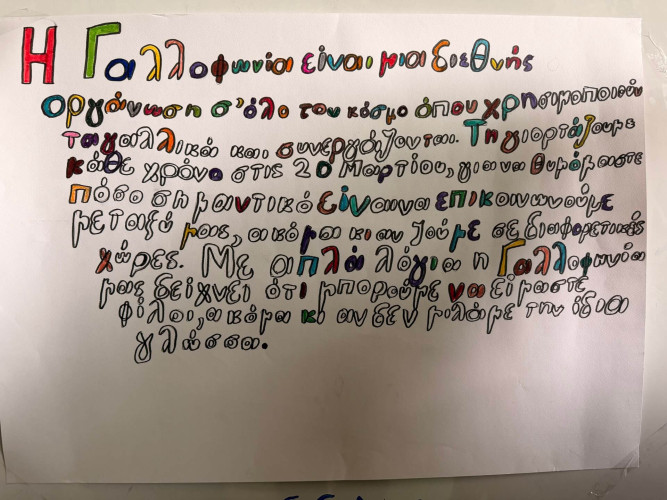 Η Γαλλοφωνία είναι μια διεθνής
οργάνωση σ' όλο τον κόσμο όπου χρησιμοποιούν
τα γαλλικά και συνεργάζονται. Τη γιορτάζουμε
κάθε χρόνο στις 20 Μαρτίου, για να θυμόμαστε
πόσο σημαντικό είναι να επικοινωνούμε
μεταξύ μας, ακόμα κι αν ζούμε σε διαφορετικές
χώρες. Με απλά λόγια η Γαλλοφωνία
μας δείχνει ότι μπορούμε να είμαστε
φίλοι, ακόμα κι αν δεν μιλάμε την ίδια
γλώσσα.